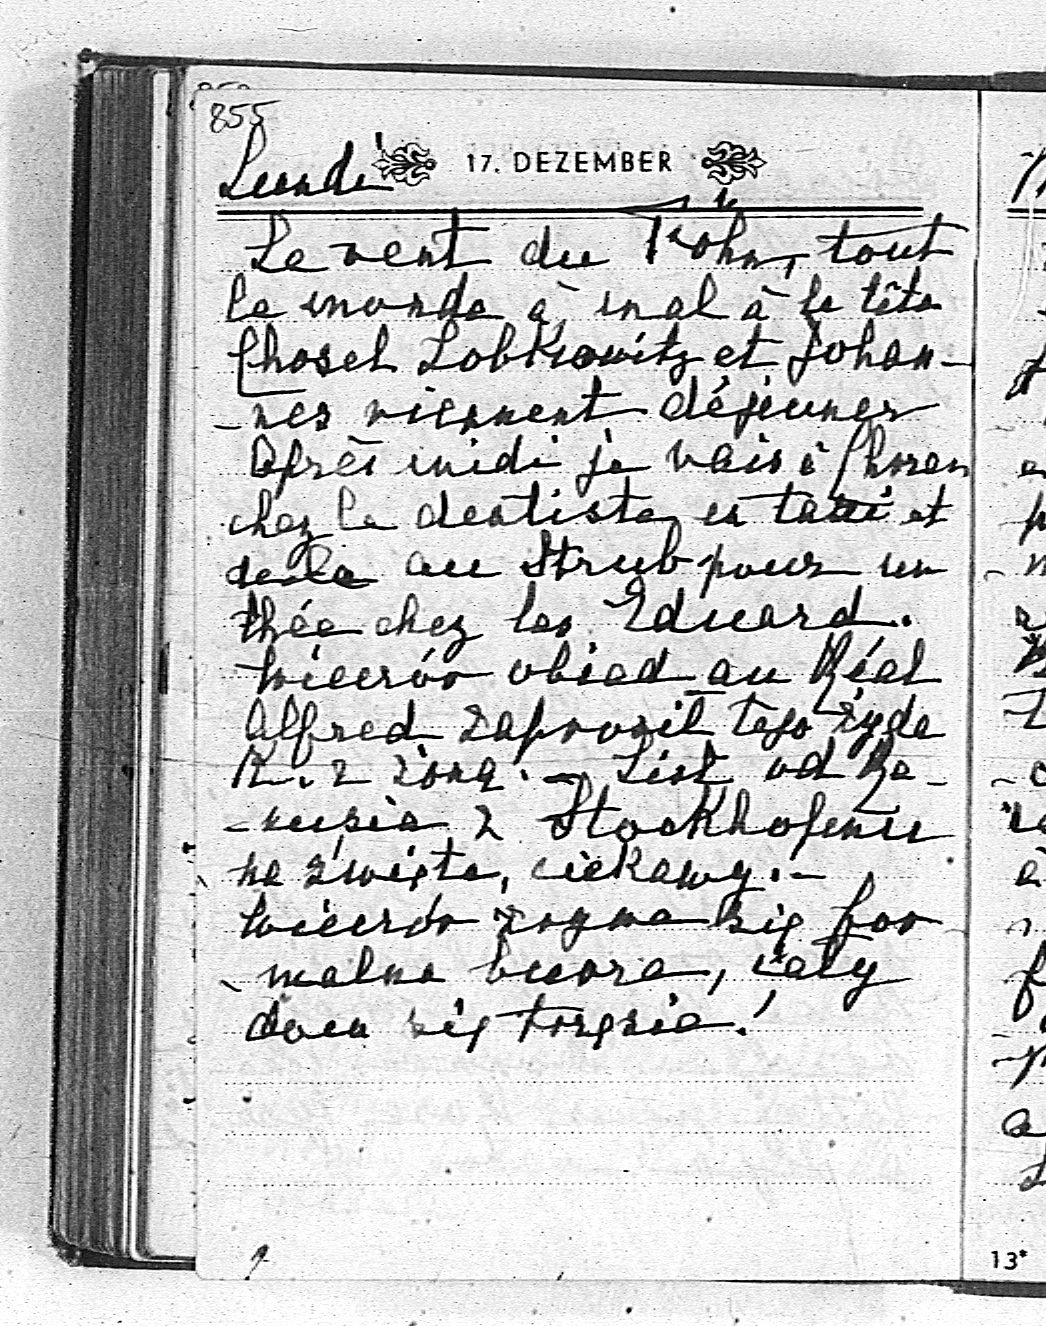 855
Lundi 17. DEZEMBER
Le vent du Föhn, tout
le monde a mal à la tête
Chosel Lobkowitz et Johan-
-nes viennent déjeuner
Après midi je vais à
chez le dentiste en taxi et
de la au Strub pour un
thée chez les Eduard.
Wieczór obiad au Réal
Alfred zaprosił tego żyda
K. z żoną. — List od Ka-
z Stockholmu
na święta, ciekawy. -
Wieczór zrywa się for
-malna burza, cały
dom się trzęsie!
13*